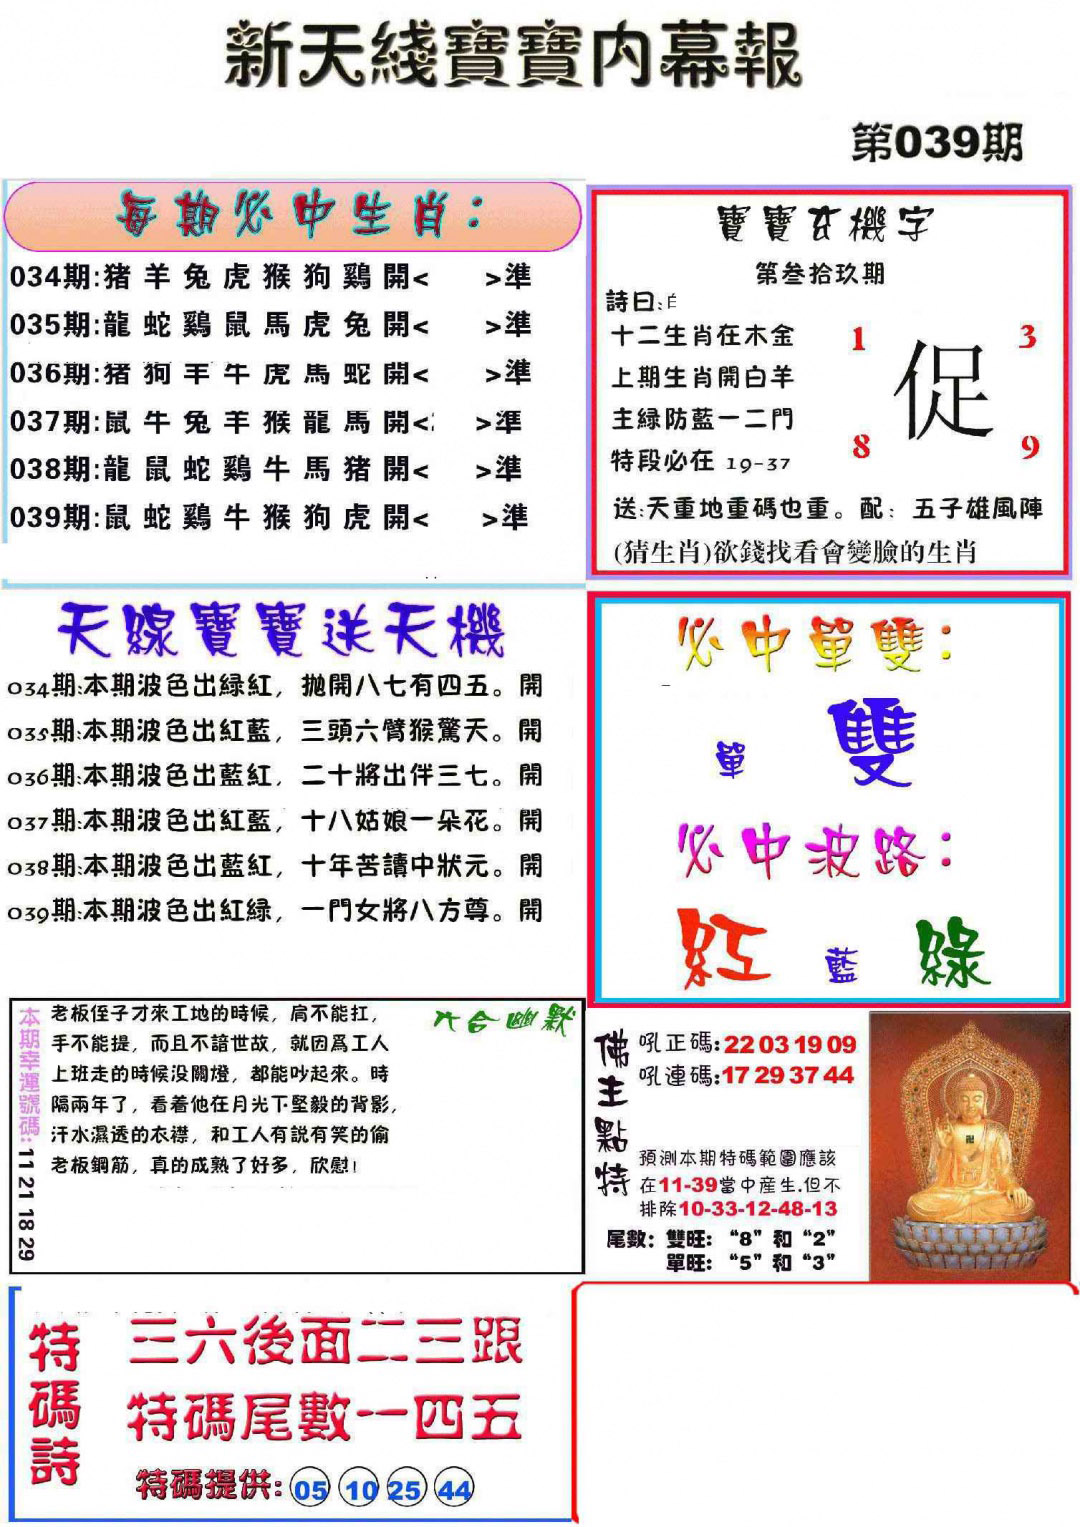 新天綫寶寶内幕報
第039期
每期必中生肖：
034期:猪羊兔虎猴狗鷄開< >準
035期:龍蛇鷄鼠馬虎兔開< >準
036期:猪狗羊牛虎馬蛇開< >準
037期:鼠牛兔羊猴龍馬開< >準
038期:龍鼠蛇鷄牛馬猪開< >準
039期:鼠蛇鷄牛猴狗虎開< >準
寶寶玄機字
第叁拾玖期
詩曰:
十二生肖在木金
上期生肖開白羊
主緑防藍一二門
特段必在 19-37
1 3
促
8 9
送:天重地重碼也重。配：五子雄風陣
(猜生肖)欲錢找看會變臉的生肖
天線寶寶送天機
034期:本期波色出緑紅，抛開八七有四五。開
035期:本期波色出紅藍，三頭六臂猴驚天。開
036期:本期波色出藍紅，二十將出伴三七。開
037期:本期波色出紅藍，十八姑娘一朵花。開
038期:本期波色出藍紅，十年苦讀中狀元。開
039期:本期波色出紅緑，一門女將八方尊。開
必中單雙：
單 雙
必中波路：
紅 藍 綠
本期幸運號碼:11 21 18 29
六合幽默
老板侄子才來工地的時候，肩不能扛，
手不能提，而且不諳世故，就因爲工人
上班走的時候没關燈，都能吵起來。時
隔兩年了，看着他在月光下堅毅的背影，
汗水濕透的衣襟，和工人有説有笑的偷
老板鋼筋，真的成熟了好多，欣慰!
佛主點特
吼正碼:22 03 19 09
吼連碼:17 29 37 44
預測本期特碼範圍應該
在11-39當中産生.但不
排除10-33-12-48-13
尾數：雙旺：“8”和“2”
單旺：“5”和“3”
特碼詩
三六後面二三跟
特碼尾數一四五
特碼提供: 05 10 25 44